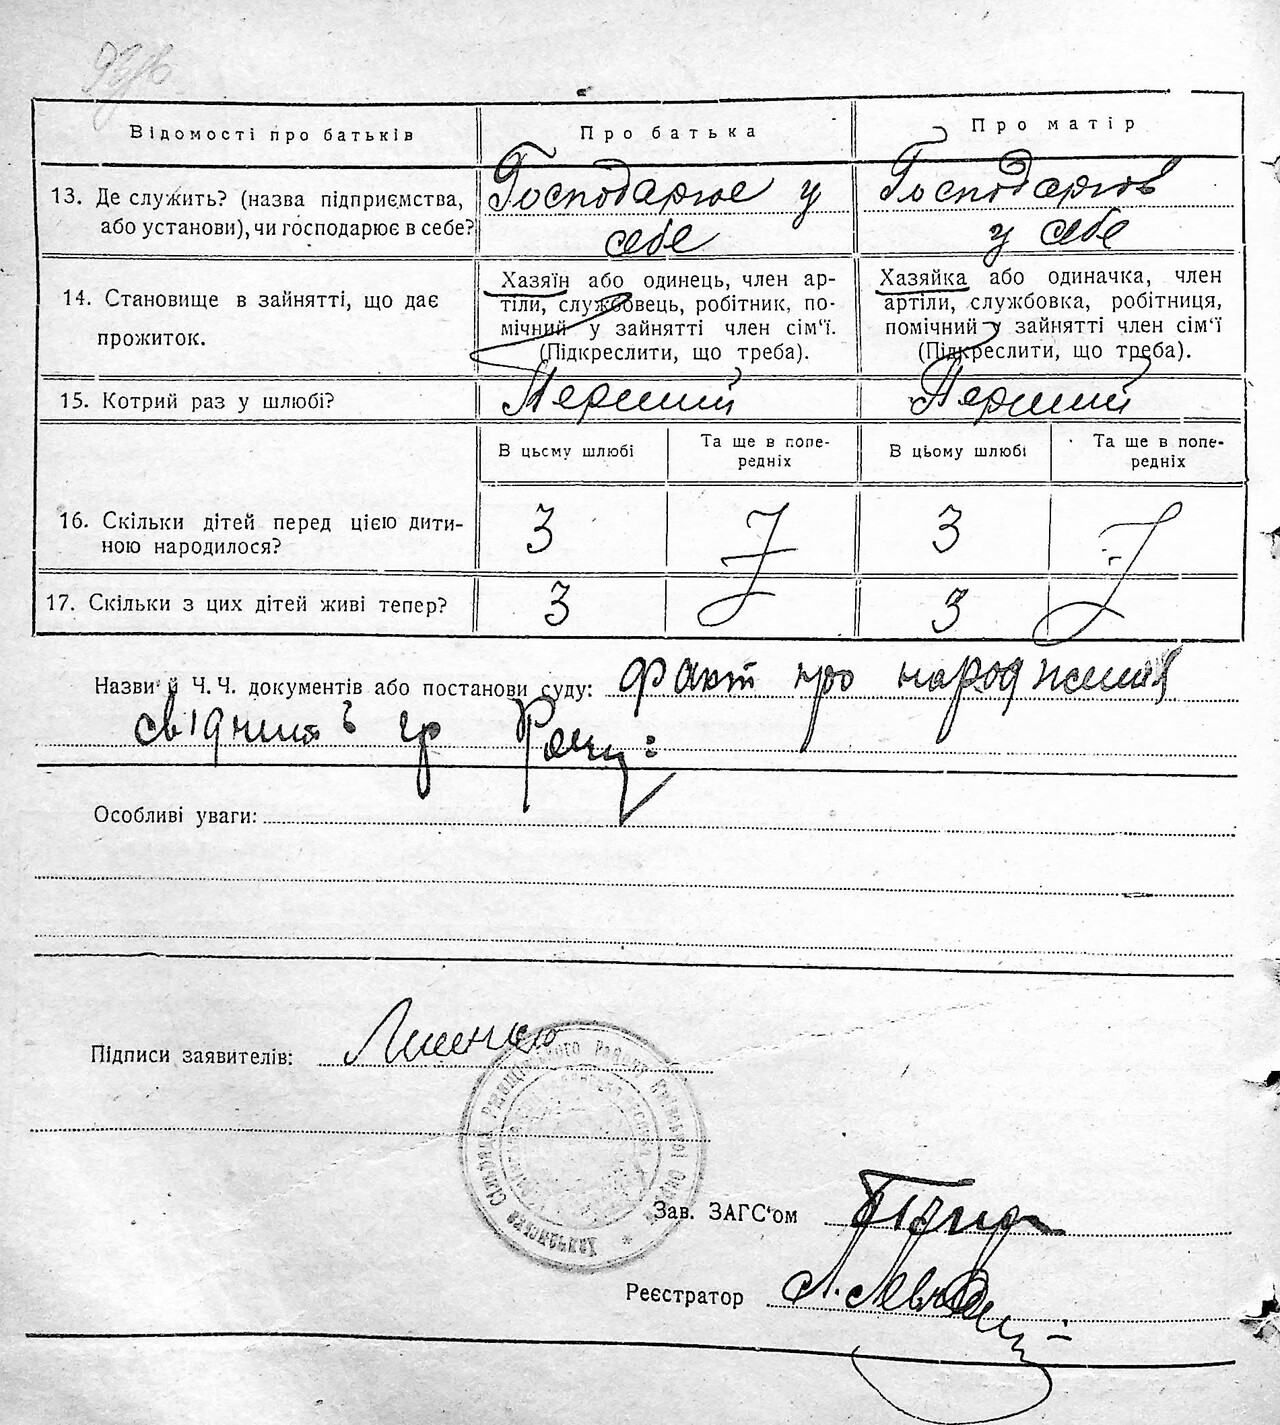 Відомості про батьків
Про батька
Про матір
13. Де служить? (назва підприємства,
або установи), чи господарює в себе?
Господарює у
себе
Господарює
у себе
14. Становище в зайнятті, що дає
прожиток.
Хазяїн або одинець, член ар-
тіли, службовець, робітник, по-
мічний у зайнятті член сім'ї.
(Підкреслити, що треба).
Хазяйка або одиначка, член
артіли, службовка, робітниця,
помічний у зайнятті член сім'ї
(Підкреслити, що треба).
15. Котрий раз у шлюбі?
Перший
Перший
В цьому шлюбі
Та ще в попе-
редніх
В цьому шлюбі
Та ще в попе-
редніх
16. Скільки дітей перед цією дити-
ною народилося?
3
3
17. Скільки з цих дітей живі тепер?
3
3
Назви й Ч. Ч. документів або постанови суду: факт про народження
гр
Особливі уваги:
Підписи заявителів:
Сільрада Ржищівського Району Київської Округи
Зав. ЗАГС'ом
Реєстратор